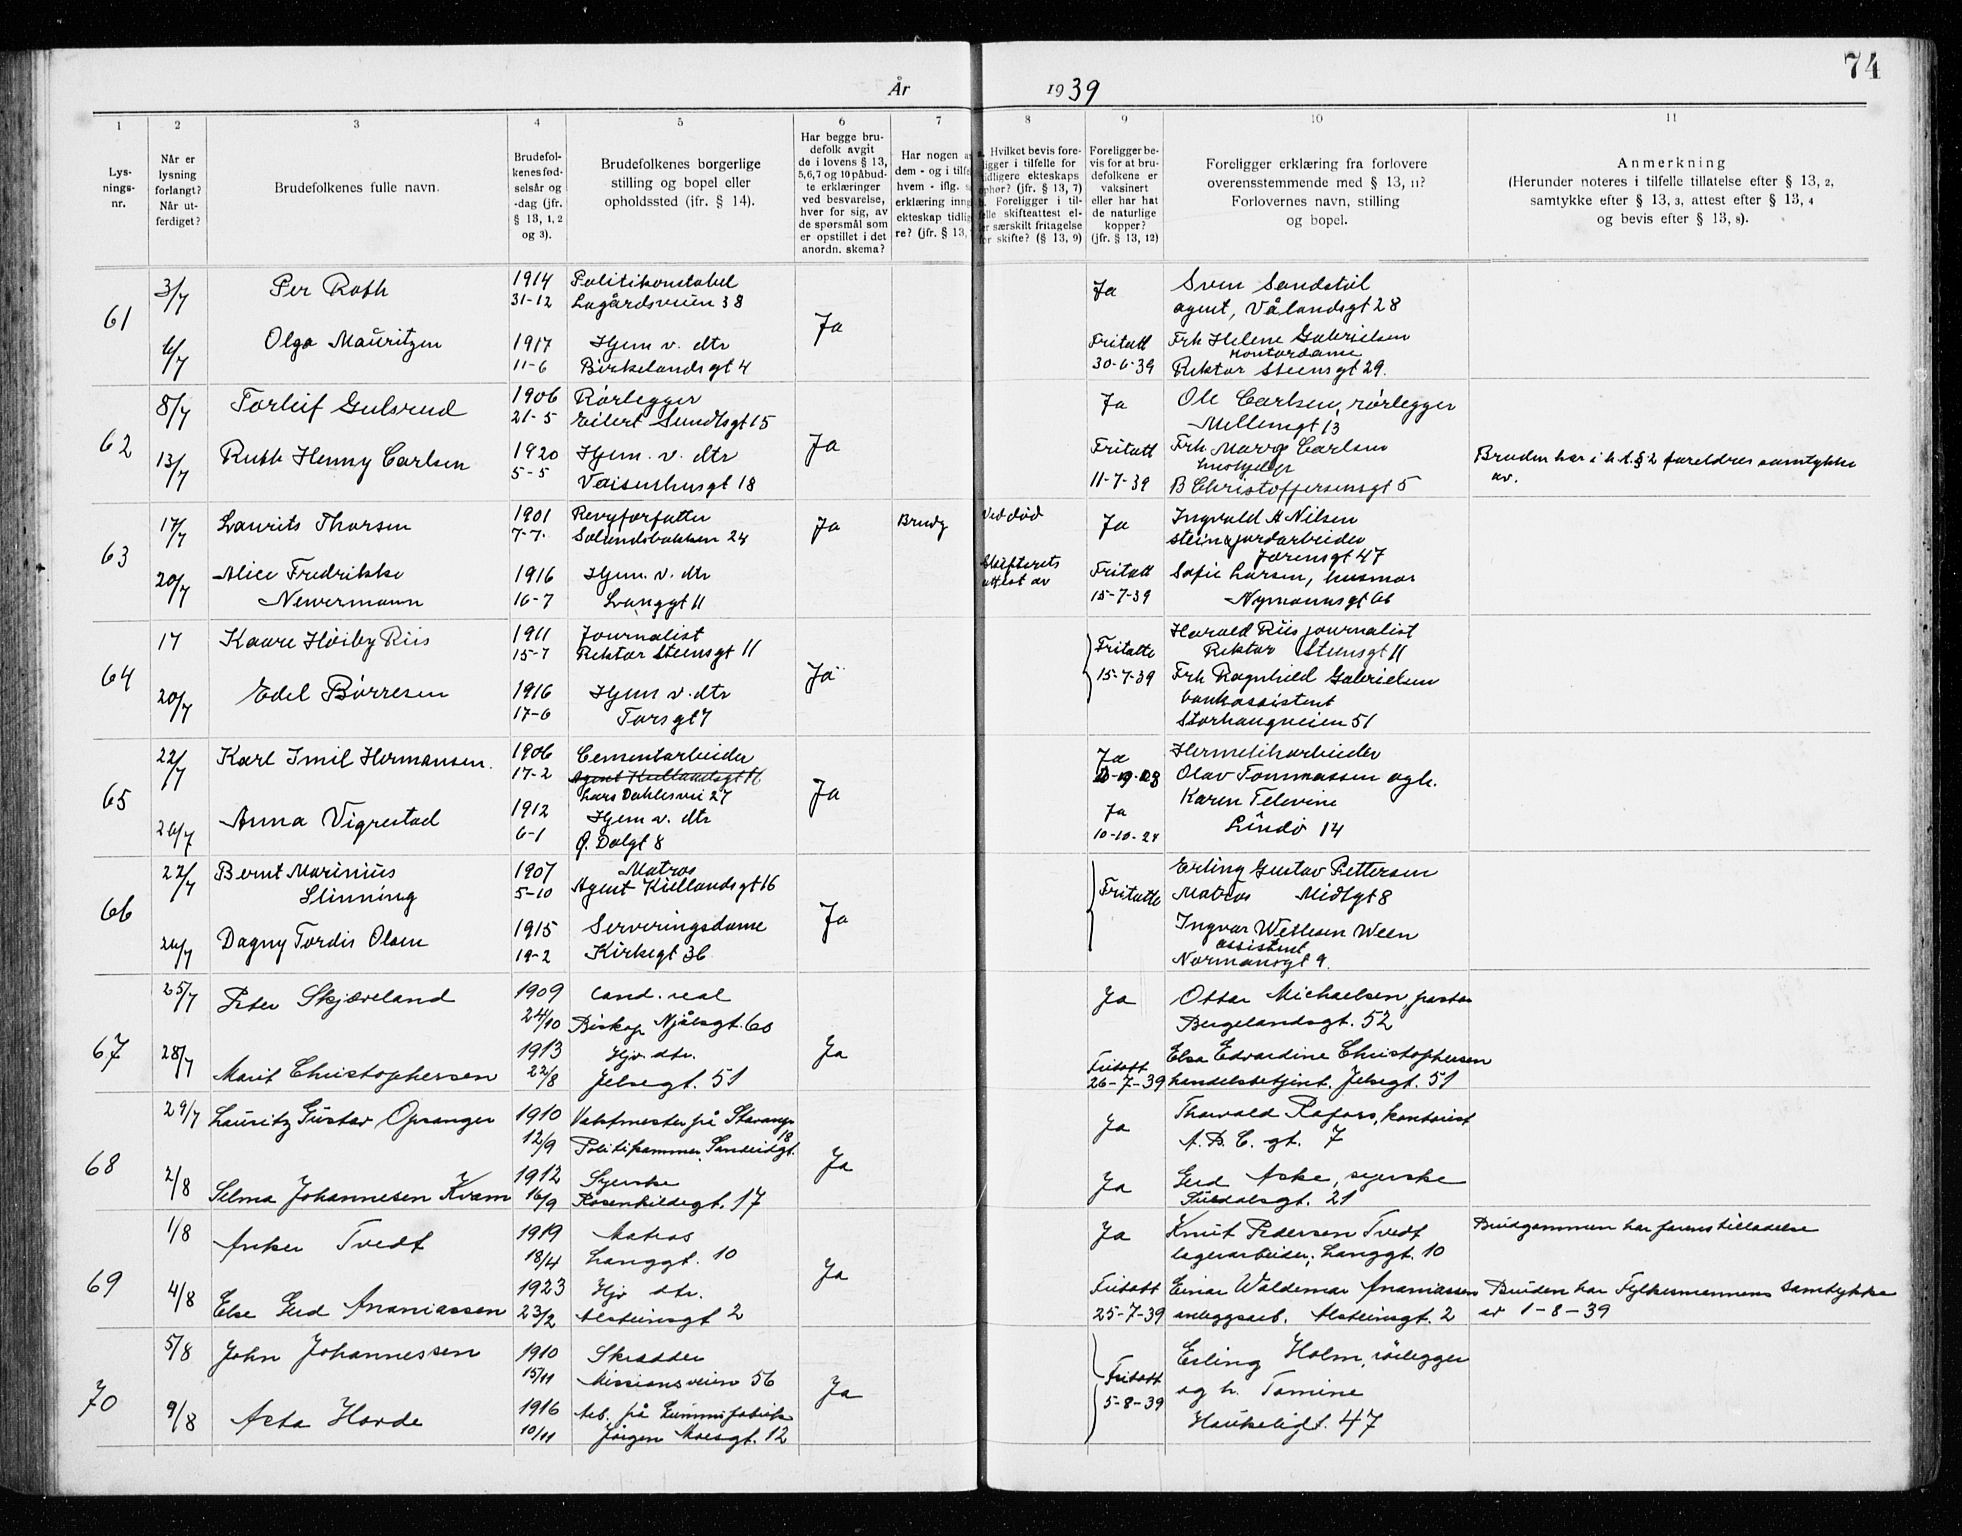 74
År 1939
1 2 3 4 5 6 7 8 9 10 11
Lysnings-nr.
Når er lysning forlangt? Når utferdiget?
Brudefolkenes fulle navn.
Brudefolkenes fødselsår og -dag (jfr. § 13, 1, 2 og 3).
Brudefolkenes borgerlige stilling og bopel eller opholdssted (ifr. § 14).
Har begge brudefolk avgit de i lovens § 13, 5,6,7 og 10 påbudte erklæringer ved besvarelse, hver for sig, av de spørsmål som er opstillet i det anordn. skema?
Har nogen
dem - og i tilf
hvem - iflg.
erklæring inng
ekteskap tidlig
re? (jfr. § 13,
Hvilket bevis fore-
ligger i tilfelle for
tidligere ekteskaps
ophør? (jfr. § 13, 7)
Foreligger i til-
felle skifteattest el-
særskilt fritagelse
for skifte? (§ 13, 9)
Foreligger bevis for at brudefolkene er vaksinert eller har hat de naturlige kopper? (jfr. § 13, 12)
Foreligger erklæring fra forlovere overensstemmende med § 13, 11? Forlovernes navn, stilling og bopel.
Anmerkning
(Herunder noteres i tilfelle tillatelse efter § 13, 2,
samtykke efter § 13, 3, attest efter § 13, 4
og bevis efter § 13, 8).
61
3/7 Per Roth 1914 Politikonstabel Ja Sven Sandstøl
31-12 Lagårdsveien 38 agent, Vålandsgt 28
Ja
6/7 Olga Mauritzen 1917 Hjem v. dtr Fritatt Frk Helene Gabrielsen
kontordame
11-6 Birkelandsgt 4 30-6-39 Rektor Steensgt 29.
62
8/7 Torleif Gulsrud 1906 Rørlegger Ja Ole Carlsen, rørlegger
21-5 Eilert Sundtsgt 15 Møllergt 13
Ja
13/7 Ruth Henny Carlsen 1920 Hjem. v. dtr Fritatt Frk. Mary Carlsen Bruden har i h.t. § 2 foreldres samtykke
av.
5-5 Vaisenhusgt 18 11-7-39 B Christoffersensgt 5
63
17/7 Laurits Thorsen 1901 Revyforfatter Ja Brudg Ved død Ja Ingvald A Nilsen
7-7. Solundsbakken 24 stein & jordarbeider
Jærensgt 47
20/7 Alice Fredrikke 1916 Hjem. v. dtr Skifterets Fritatt Sofie Larsen, husmor
attest av
Newermann 16-7 Langgt 11 15-7-39 Nymannsgt 66
64
17 Kaare Høiby Riis 1911 Journalist Fritatte Harald Riis journalist
15-7 Rektor Steensgt 11 Rektor Steensgt 11
Ja
20/7 Edel Börresen 1916 Hjem v. dtr 15-7-39 Frk Ragnhild Gabrielsen
17-6 Torsgt 7 bankassistent
Storhaugveien 51
65
22/7 Karl Emil Hermansen. 1906 Cementarbeider Ja Hermetikarbeider
17-2 Agent Kiellandsgt 16 Olav Tommassen og h.
Lars Dahlesvei 27 Karen Televine
Ja
26/7 Anna Vigrestad 1912 Hjem v. dtr Ja Lindö 14
6-1 Ø. Dalgt 8 10-10-24
66
22/7 Bernt Marinius 1907 Matros Fritatte Erling Gustav Pettersen
Slinning 5-10 Agent Kiellandsgt 16 Matros Midtgt 8
Ja
26/7 Dagny Tordis Olsen 1915 Serveringsdame Ingvar Wettesen Ween
assistent
19-2 Kirkegt 36 Normansgt 9.
67
25/7 Peter Skjæveland 1909 Cand. real Ja Ottar Michaelsen, pastor
24/10 Biskop Njålsgt. 60 Bergelandsgt. 52
Ja
28/7 Marit Christophersen 1913 Hjv. dtr. Fritatt Elsa Edvardine Christophersen
22/8 Jelsegt. 51 26-7-39 handelsbetjent. Jelsegt. 51
68
29/7 Lauritz Gustav Opsanger 1910 Vaktmester på Stavanger Ja Thorvald Rafoss, kontorist
12/9 Politikammer, Sandeidgt. 18 A. B. C. gt. 7
Ja
2/8 Selma Johannesen Kvam 1912 Syerske Ja Gerd Aske, syerske
16/9 Rosenkildegt. 17 Suldalsgt. 21
69
1/8 Anker Tvedt 1919 Matros Ja Knut Pedersen Tvedt Brudgommen har farens tilladelse
18/4 Langgt. 10 lagerarbeider, Langgt. 10
Ja
4/8 Else Gerd Ananiassen 1923 Hjv dtr. Fritatt Einar Waldemar Ananiassen Bruden har Fylkesmannens samtykke
23/2 Alsteinsgt 2 25-7-39 anleggsarb. Alsteinsgt. 2 av 1-8-39
70
5/8 John Johannessen 1910 Skredder Fritatt Erling Holm, rörlegger
15/11 Missionsveien 56 5-8-39 og h. Tomine
Ja
9/8 Asta Horde 1916 Arb. på Gummifabrik Haukeligt. 47
10/11 Jörgen Moesgt. 12